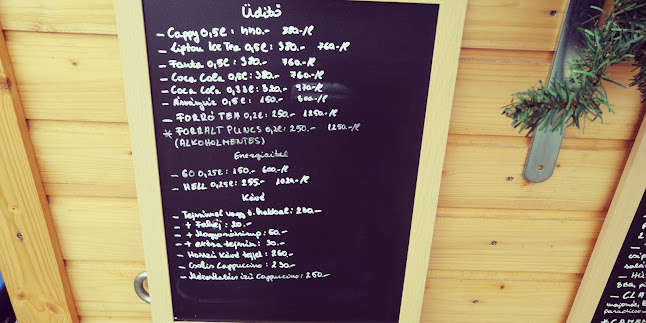 Üdítő
- Cappy 0,5l: 440.- 880.-/l
- Lipton Ice Tea 0,5l: 380.- 760.-/l
- Fanta 0,5l: 380.- 760.-/l
- Coca Cola 0,5l: 380.- 760.-/l
- Coca Cola 0,33l: 320.- 970.-/l
- Ásványvíz 0,5l: 150.- 300.-/l
- FORRÓ TEA 0,2l: 250.- 1250.-/l
* FORRALT PUNCS 0,2l: 250.- 1250.-/l
(ALKOHOLMENTES)
Energiaital
- GO 0,25l: 150.- 600.-/l
- HELL 0,25l: 255.- 1020.-/l
Kávé
- Tejszínnel vagy t.habbal: 200.-
- + Fahéj: 20.-
- + 50.-
- + extra tejszín: 30.-
- Hosszú Kávé tejjel: 260.-
- Csokis Cappuccino: 230.-
- ízű Cappuccino: 250.-